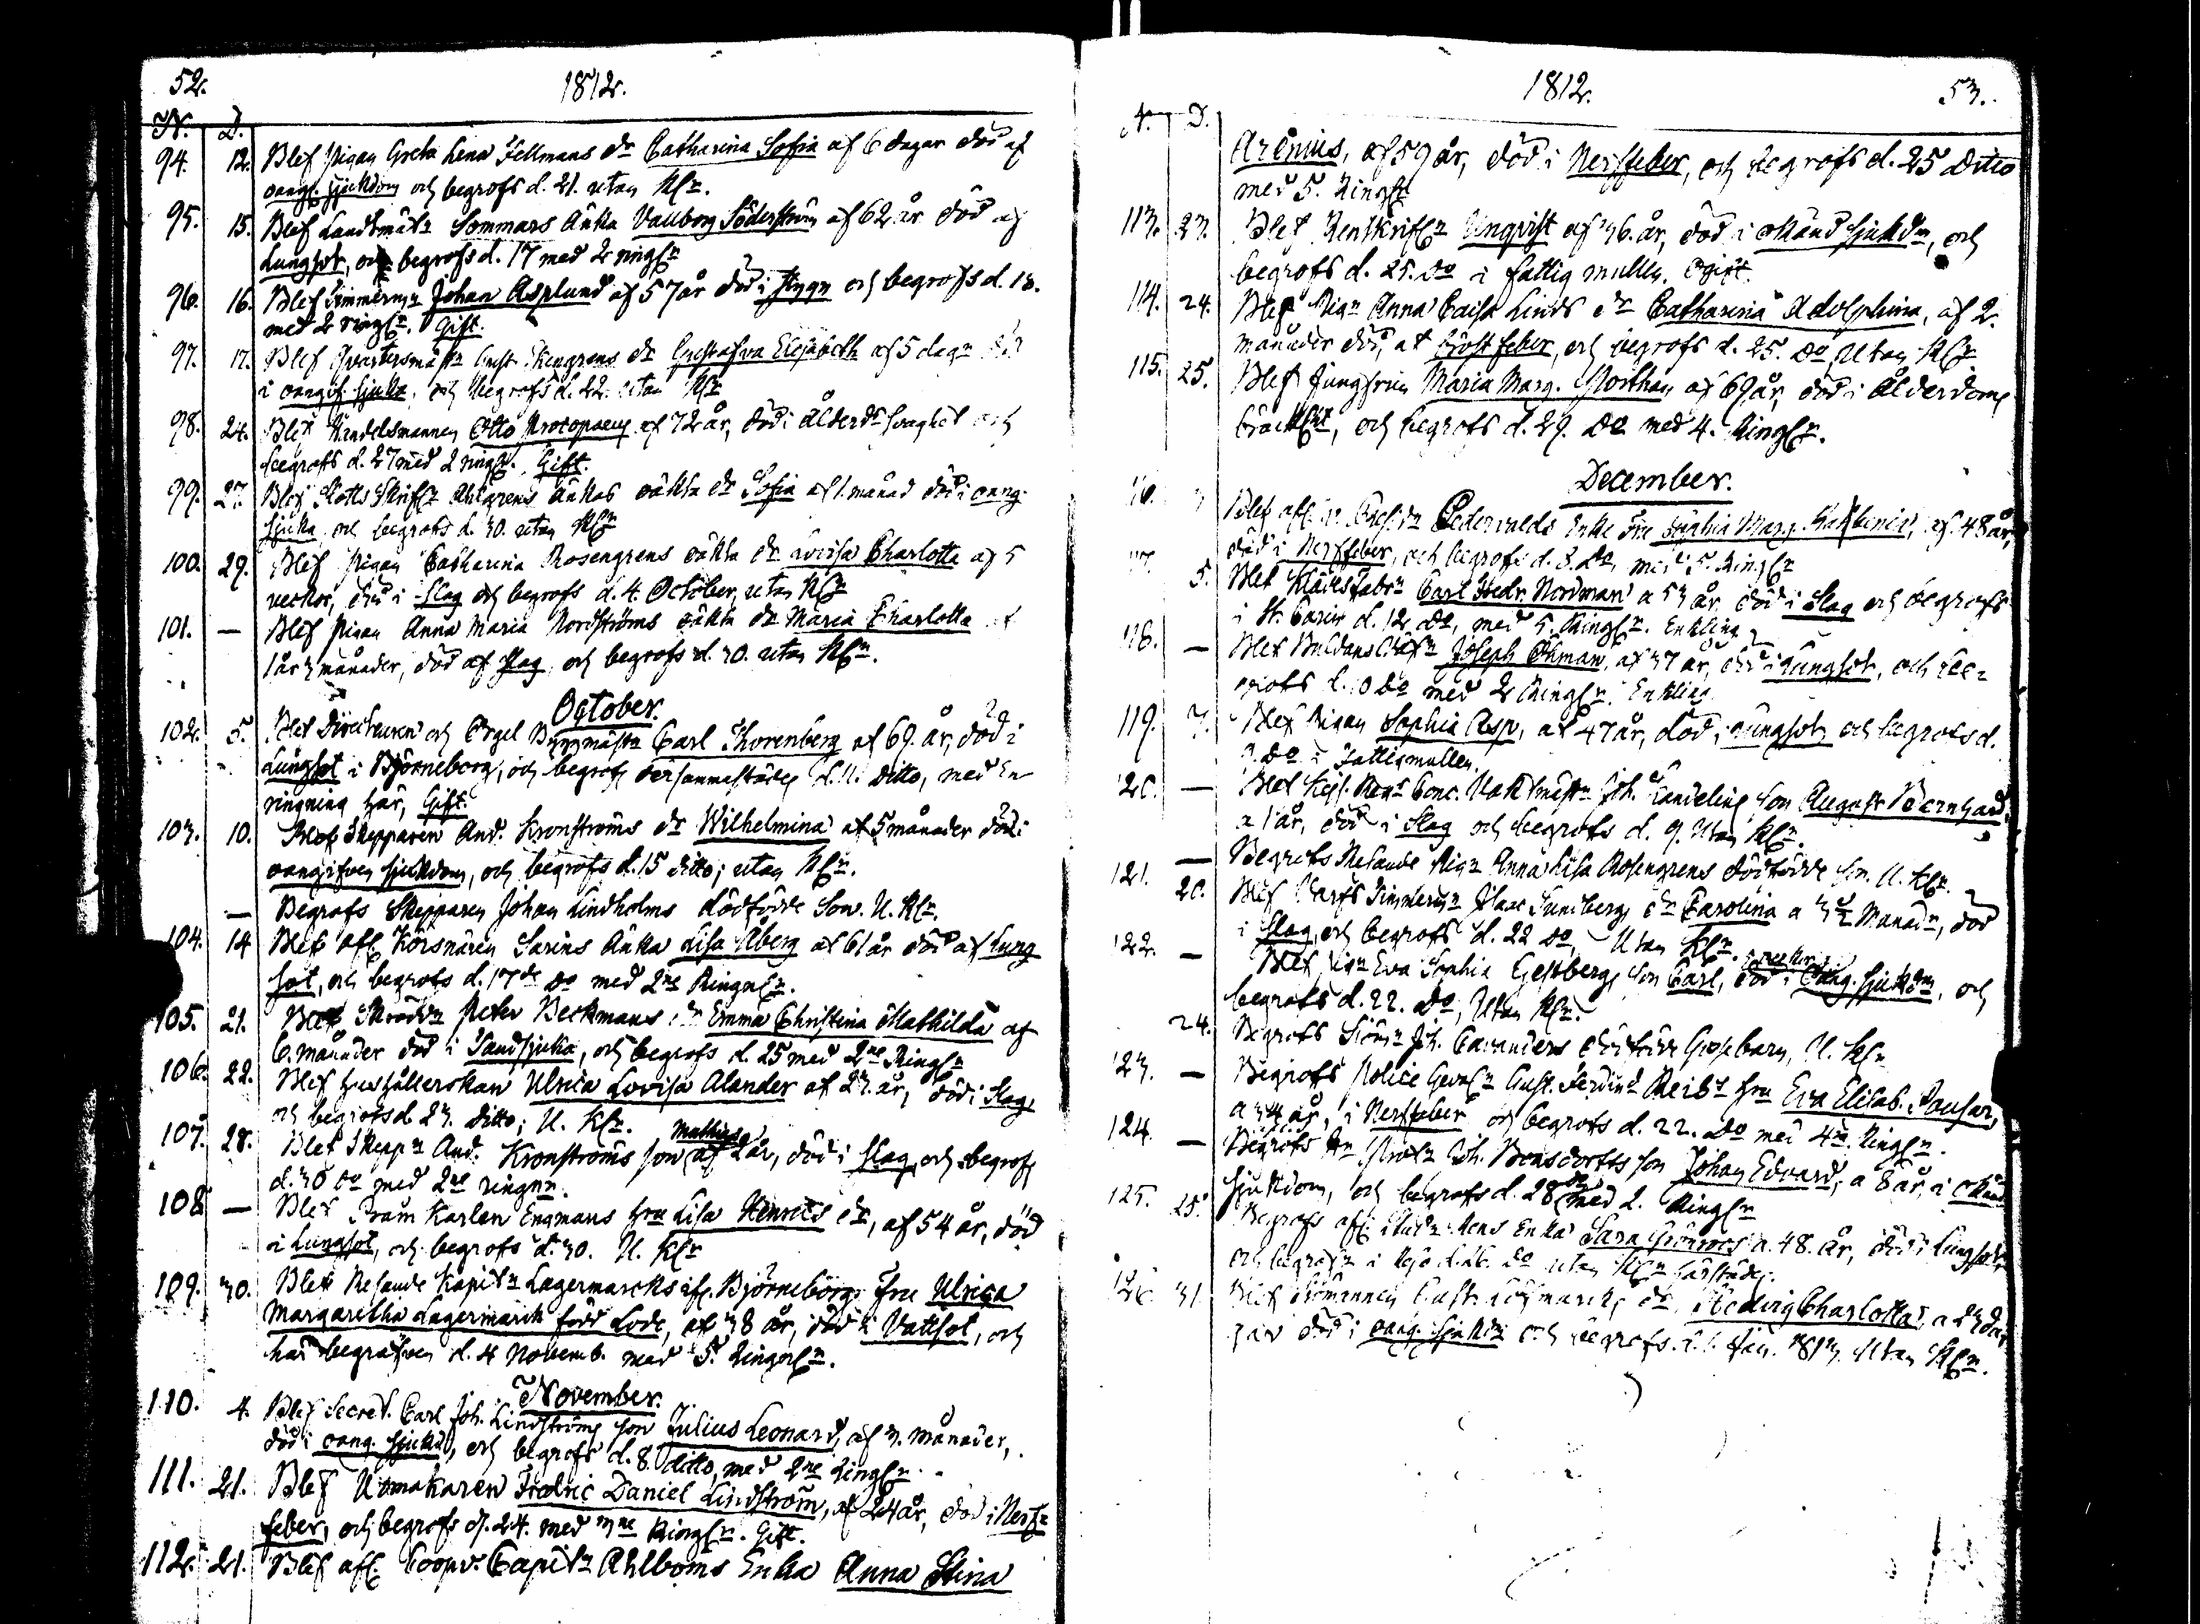 52.
1812.
N. D.
94. 12. Blef Pigan Greta Lena Fellmans dr Catharina Sofia af 6 dagar död af
oang. sjukdom och begrofs d. 21. utan Kln.
95. 15. Blef Landtmätn Sommars Änka Vauborg Söderström af 62 år död af
Lungsot, och begrofs d. 17 med 2 ringln
96. 16. Blef Timmermn Johan Asplund af 57 år död i Hygn och begrofs d. 18.
med 2 ringln. Gift.
97. 17. Blef Qvartersmästn Gust. Stengrens dr Gustafva Elisabeth af 5 dagr död
i oangif. sjukd. och begrofs d. 22. utan Kln
98. 24. Blef Handelsmannen Otto Protopaeus af 72 år, död i Ålderds svaghet och
begrofs d. 27 med 2 ringln. Gift.
99. 27. Blef Slotts Skrifn Ahlgrens Änkas oäkta dr Sofia af 1. månad död i oang.
sjukd. och begrofs d. 30. utan Kln
100. 29. Blef Pigan Catharina Rosengrens oäkta dr Lovisa Charlotta af 5
veckor, död i Slag och begrofs d. 4. October, utan Kln
101. — Blef Pigan Anna Maria Nordströms oäkta dr Maria Charlotta af
1 år 3 månader, död af Slag, och begrofs d. 30. utan Kln.
October.
102. 5. Blef Directeuren och Orgel Byggmästn Carl Thorenberg af 69. år, död i
Lungsot i Björneborg, och begrofs dersammastädes d. 11. ditto, med En
ringning här, Gift.
103. 10. Blef Skepparen And. Kronströms dr Wilhelmina af 5 månader död i
oangifven sjukdom, och begrofs d. 15 ditto; utan Kln.
— Begrofs Skepparen Johan Lindholms dödfödde Son. U. Kln.
104. 14 Blef afl. Körsnären Sarins Änka Lisa Åberg af 61 år död af Lung
sot, och begrofs d. 17de do med 2ne Ringnln.
105. 21. Blef Skräddn Peter Beckmans dr Emma Christina Mathilda af
6. månader död i Tandsjuka, och begrofs d. 25 med 2ne Ringln
106. 22. Blef Hushållerskan Ulrica Lovisa Alander af 23. år, död i Slag,
och begrofs d. 23. ditto; U. Kln.
107. 28. Blef Skeppn And. Kronströms son Mathias af 2 år, död i Slag, och begrofs
d. 30 do med 2ne ringnr.
108. — Blef Pråm Karlen Engmans hru Lisa Henrics dr, af 54 år, död
i Lungsot, och begrofs d. 30. U. Kln
109. 30. Blef Resande Kapitn Lagermarcks ifr. Björneborg Fru Ulrica
Margaretha Lagermarck född Lode, af 38 år, död i Vattsot, och
här begrafven d. 4 Novemb. med 5. Ringnln.
November.
110. 4. Blef Secret. Carl Joh. Lindströms son Julius Leonard, af 3. månader,
död i oang. sjukd., och begrofs d. 8. ditto, med 2ne Ringln.
111. 21. Blef Urmakaren Fredric Daniel Lindström, af 24 år, död i Nerf=
feber, och begrofs d. 24. med 3ne Ringln. Gift.
112. 21. Blef afl. Coopv. Capitn Ahlboms Enka Anna Stina
1812.
53.
N. D.
Arenius, af 59 år, död i Nerffeber, och begrofs d. 25 Ditto
med 5. Ringln
113. 23. Blef Rentskrifn Unqvist af 36. år, död i okänd sjukdm, och
begrofs d. 25. do i fattig mullen. Ogift.
114. 24. Blef Pign Anna Caisa Linds dr Catharina Adolphina, af 2.
månader död, at bröst feber, och begrofs d. 25. do Utan Kln
115. 25. Blef Jungfrun Maria Marg. Porthan af 69 år, död i Ålderdoms
bräcklht, och begrofs d. 29. do med 4. Ringln.
December.
Cedervalds Enke Fru Sophia Marg. af 48 år,
död i Nerffeber, och begrofs d. 8. do, med 5. Ringln
5. Blef Klädesfabrn Carl Fredr. Nordman a 53 år, död i Slag och begrofs
i St. Carins d. 12 do, med 5. Ringln. Enkling
118. — Blef Joseph Öhman, af 37 år, död i Lungsot, och be=
grofs d. 10 do med 2 Ringln. Enkling
119. 7. Blef Pigan Sophia Asp, af 47 år, död i Lungsot och begrofs d.
do i Fattigmullen.
120. — Blef Vaktmästn Joh. Landelins son August Bernhard,
a 1 år, död i Slag och begrofs d. 9. Utan Kln.
— Begrofs Resande Pign Anna Lisa Rosengrens dödfödde son. U. Kln.
121. 20. Blef Varfs Timmermn Isaac Sundbergs dr Carolina a 3 Månadr, död
i Slag, och begrofs d. 22 do, Utan Kln.
122. — Blef Pign Eva Sophia Gestbergs son Carl, veckor, död i Oang. sjukdm, och
begrofs d. 22. do, Utan Kln.
24. Begrofs Joh. Cavanders dödfödde Gossebarn, U. Kln
123. — Begrofs Police Gust. Ferdind Reibs hru Eva Elisab.
a 34 år, i Nerffeber och begrofs d. 22. do med 4. Ringln.
124. — Begrofs Joh. Bonsdorffs son Johan Edvard, a 8 år, i okänd
sjukdom, och begrofs d. 28 do med 2. Ringln
125. 25. Begrofs afl. Enka Sara Grönroos a. 48. år, död i Lungsot,
och begrafn i d. 26. do utan Kln härstädes.
126. 31. Blef dr Hedvig Charlotta, a 23 da=
gar död i oang. sjukdm och begrofs d. 1. Jan. 1813. Utan Kln.